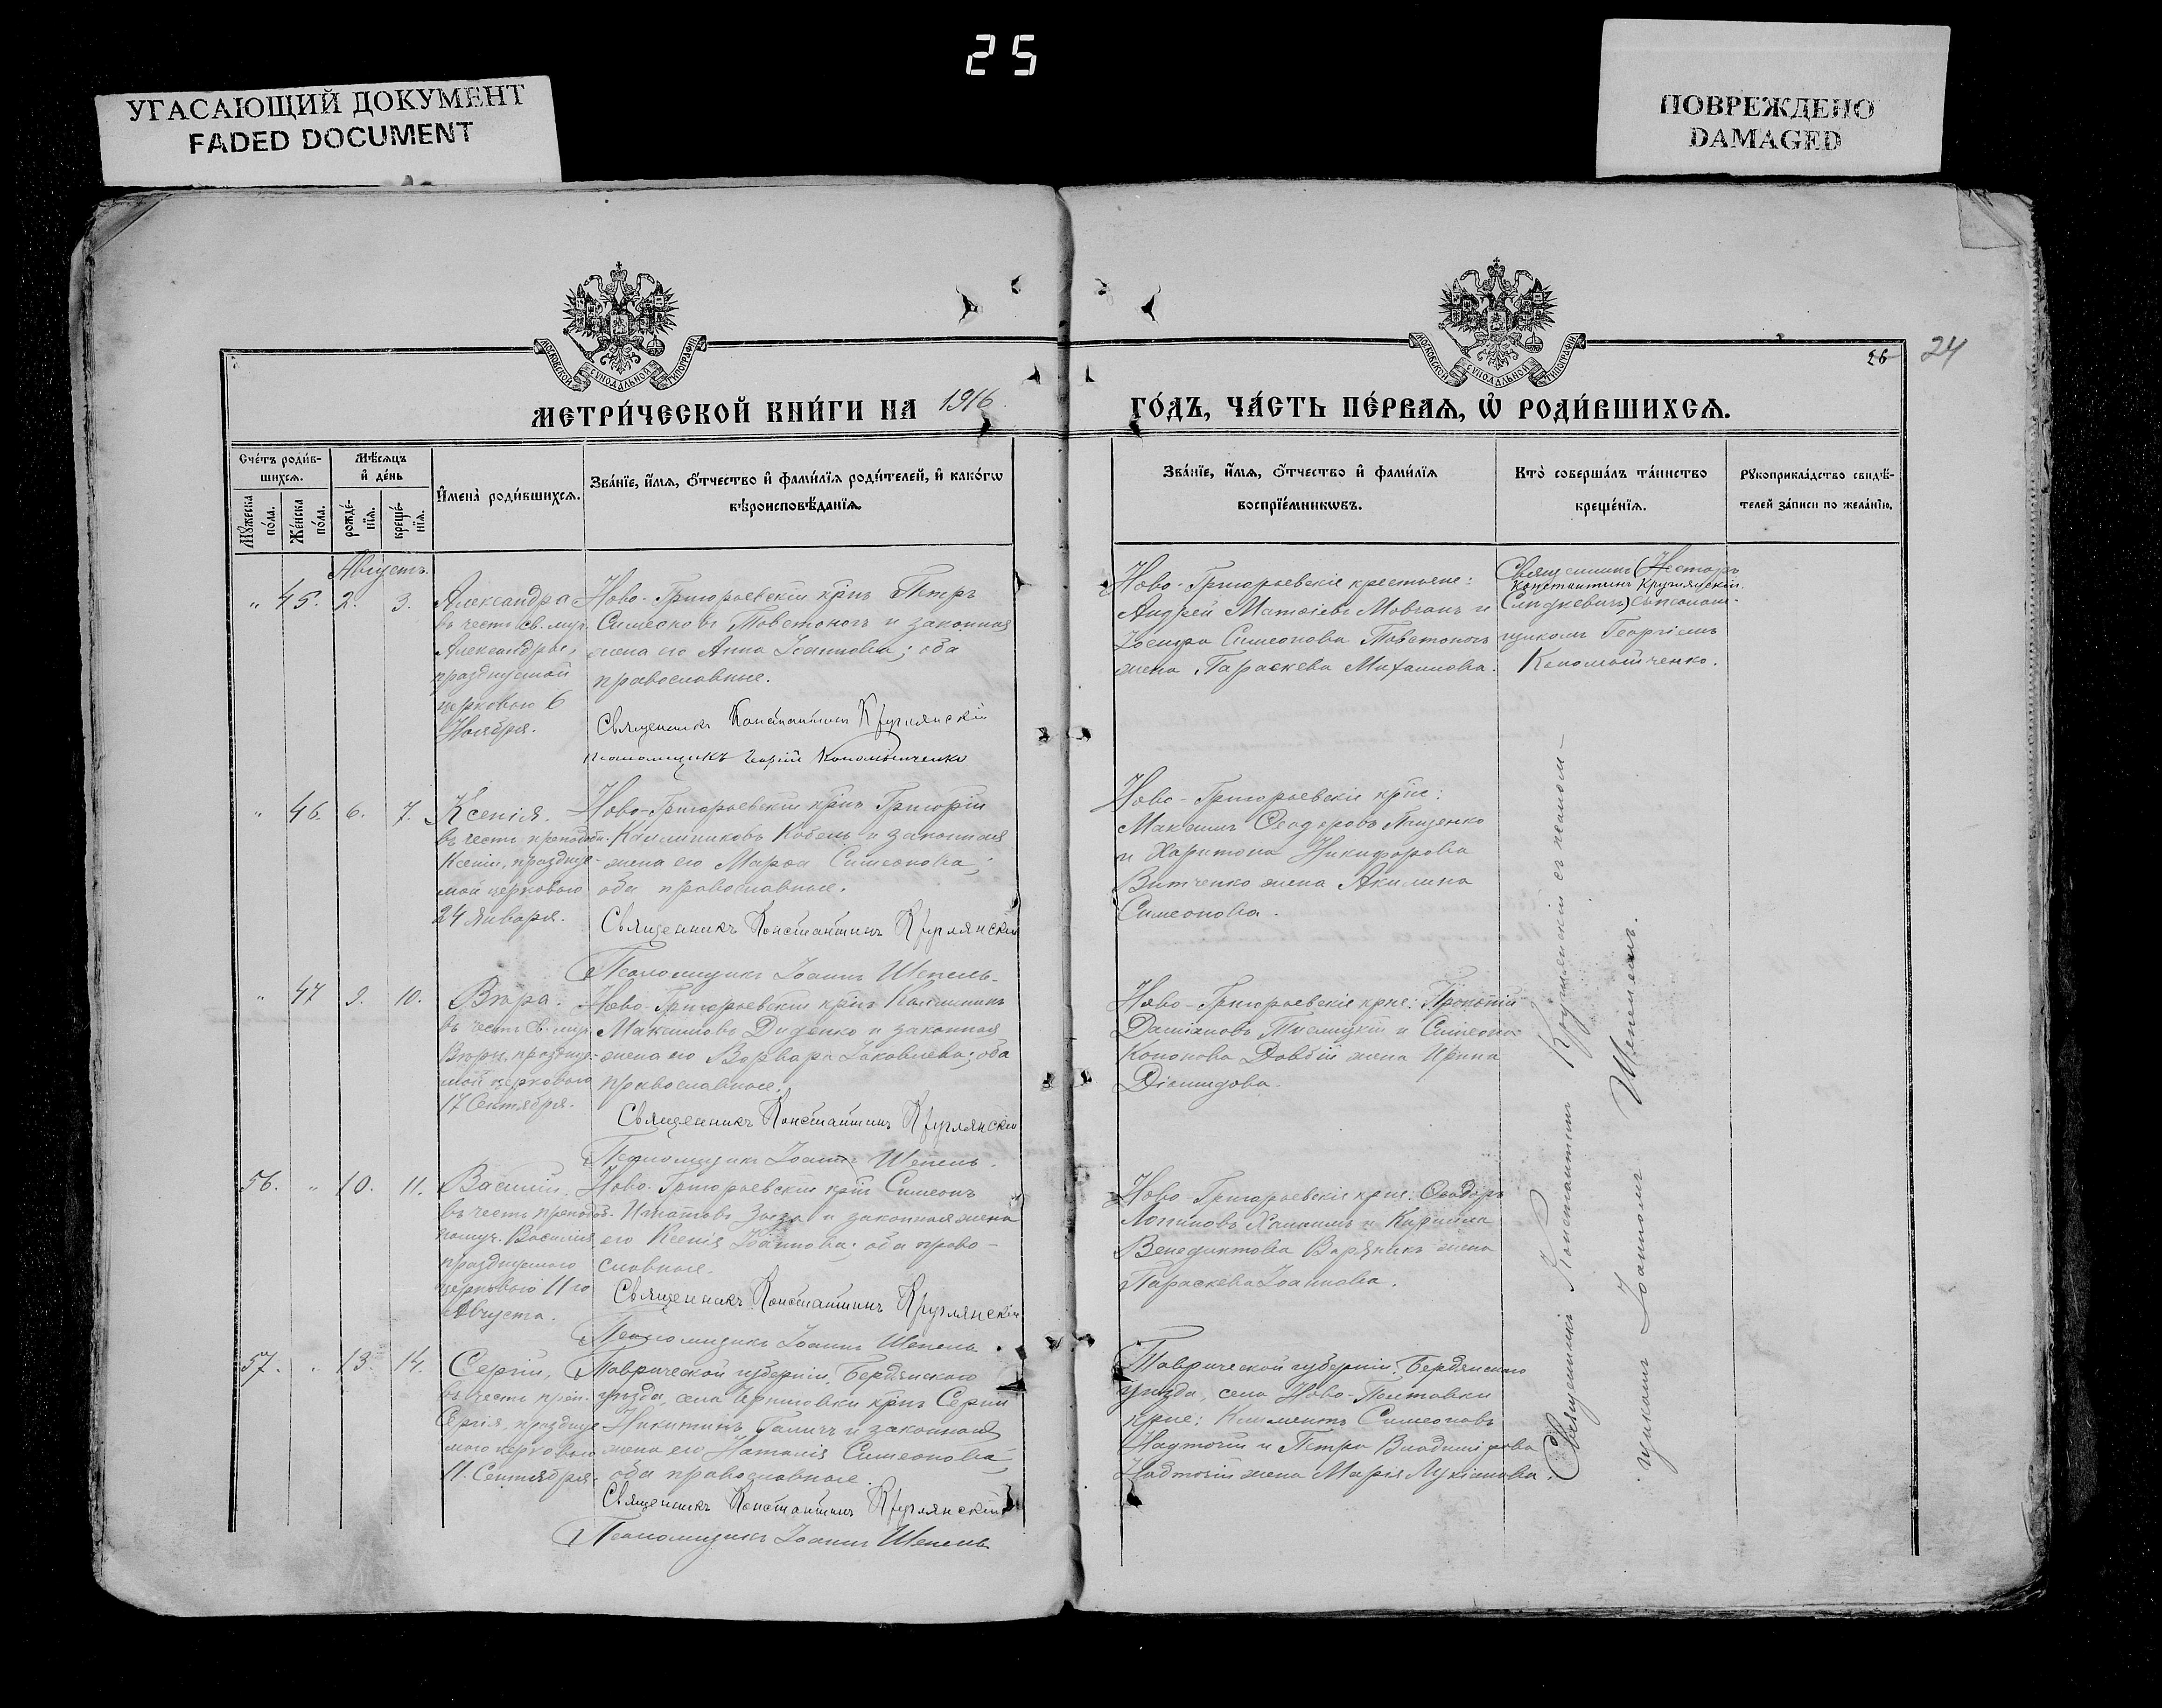 25
УГАСАЮЩИЙ ДОКУМЕНТ
FADED DOCUMENT
ПОВРЕЖДЕНО
DAMAGED
МОСКОВСКОЙ СУНОДАЛЬНОЙ ТИПОГРАФІИ
МОСКОВСКОЙ СУНОДАЛЬНОЙ ТИПОГРАФІИ
26
24
МЕТРИ́ЧЕСКОЙ КНИ́ГИ НА 1916
ГО́ДЪ, ЧА́СТЬ ПЕ́РВАѦ, Ѡ҆ РОДИ́ВШИХСѦ.
Сче́тъ роди́в-
шихсѧ.
Мѣ́сѧцъ
и҆ де́нь
Мꙋ́жеска
по́ла.
Же́нска
по́ла.
рожде́-
нїѧ.
креще́-
нїѧ.
И҆мена̀ роди́вшихсѧ.
Зва́нїе, и҆́мѧ, ѻ҆́тчество и҆ фами́лїѧ роди́телей, и҆ како́гѡ
вѣроисповѣ́данїѧ.
Зва́нїе, и҆́мѧ, ѻ҆́тчество и҆ фами́лїѧ
воспрїе́мникѡвъ.
Кто̀ соверша́лъ та́инство
креще́нїѧ.
Рꙋкоприкла́дство свидѣ́-
телей за́писи по жела́нїю.
Августъ.
" 45. 2. 3.
Александра
въ честь св. муч.
Александры,
празднуемой
церковью 6
Ноября.
Ново-Григорьевскій крнъ Петръ
Симеоновъ Товстоногъ и законная
жена его Анна Іоаннова; оба
православные.
Священникъ Константинъ Круглянскій
Псаломщикъ Георгій Коломыйченко
Ново-Григорьевскіе крестьяне:
Андрей Матѳіевъ Мовчанъ и
Іосифа Симеонова Товстоногъ
жена Параскева Михаилова.
Священникъ (Несторъ
Константинъ Круглянскій
) съ псалом-
щикомъ Георгіемъ
Коломыйченко.
" 46. 6. 7.
Ксенія.
въ честь преподобн.
Ксеніи, празднуе-
мой церковью
24 Января.
Ново-Григорьевскій крнъ Григорій
Каллиниковъ Кобель и законная
жена его Марѳа Симеонова;
оба православные.
Священникъ Константинъ Круглянскій
Псаломщикъ Іоаннъ Шепель
Ново-Григорьевскіе крне:
Максимъ Ѳеодоровъ Ященко
и Харитона Никифорова
Витченко жена Акилина
Симеонова.
" 47 9. 10.
Вѣра.
въ честь св. муч.
Вѣры, празднуе-
мой церковью
17 Сентября.
Ново-Григорьевскій крнъ Каллиникъ
Максимовъ Диденко и законная
жена его Варвара Іаковлева; оба
православные.
Священникъ Константинъ Круглянскій
Псаломщикъ Іоаннъ Шепель.
Ново-Григорьевскіе крне: Прокопій
Даміановъ и Симеона
Кононова Довбій жена Ирина
Діомидова.
56. " 10. 11.
Василій.
въ честь преподоб-
номуч. Василія
празднуемаго
церковью 11го
Августа.
Ново-Григорьевскій крнъ Симеонъ
Игнатовъ Зыза и законная жена
его Ксенія Іоаннова; оба право-
славные.
Священникъ Константинъ Круглянскій
Псаломщикъ Іоаннъ Шепель
Ново-Григорьевскіе крне: Ѳеодоръ
Логиновъ и Кирилла
Венедиктова Вареникъ жена
Параскева Іоаннова.
57. " 13. 14.
Сергій,
въ честь преп.
Сергія, празднуе-
маго церковью
11. Сентября.
Таврической губерніи, Бердянскаго
уѣзда, села Черниговки крнъ Сергій
Никитинъ Галичъ и законная
жена его Наталія Симеонова,
оба православные.
Священникъ Константинъ Круглянскій
Псаломщикъ Іоаннъ Шепель
Таврической губерніи, Бердянскаго
уѣзда, села Ново-Полтавки
крне: Климентъ Симеоновъ
Надточій и Петра Владимірова
Надточій жена Марія Лукіанова.
Священникъ Константинъ Круглянскій съ псалом-
щикомъ Іоанномъ Шепелемъ.